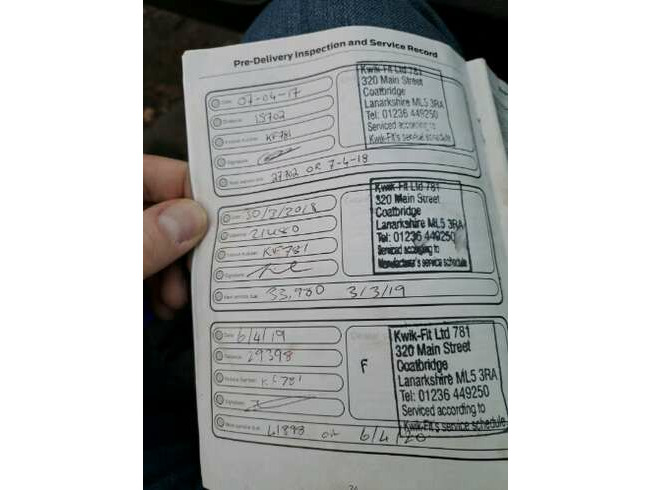 Pre-Delivery Inspection and Service Record
Date: 07-04-17
Distance: 18702
Invoice number: KF781
Signature:
Next service due: 27702 OR 7-4-18
Kwik-Fit Ltd 781
320 Main Street
Coatbridge
Lanarkshire ML5 3RA
Tel: 01236 449250
Serviced according to
Kwik-Fit's service schedule
Date: 30/3/2018
Distance: 21480
Invoice number: KF781
Signature:
Next service due: 33,980 3/3/19
Kwik-Fit Ltd 781
320 Main Street
Coatbridge
Lanarkshire ML5 3RA
Tel: 01236 449250
Serviced according to
Manufacturer's service schedule
Date: 6/4/19
Distance: 29398
Invoice number: KF781
Signature:
Next service due: 41898 or 6/4/20
F
Kwik-Fit Ltd 781
320 Main Street
Coatbridge
Lanarkshire ML5 3RA
Tel: 01236 449250
Serviced according to
Kwik-Fit's service schedule